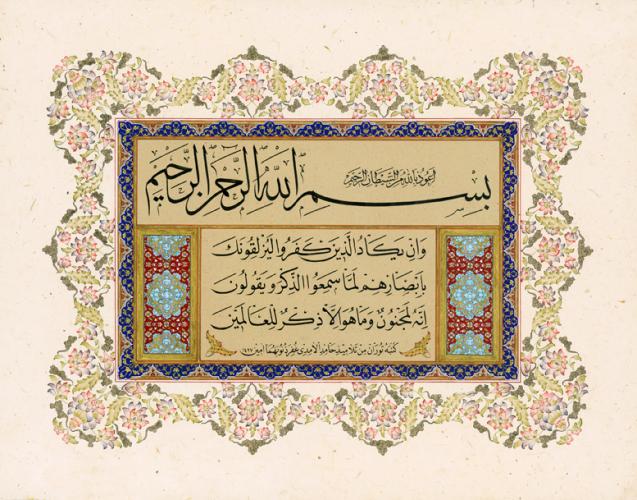 أعوذ بالله من الشيطان الرجيم
بسم الله الرحمن الرحيم
وَإِن يَكَادُ الَّذِينَ كَفَرُوا لَيُزْلِقُونَكَ
بِأَبْصَارِهِمْ لَمَّا سَمِعُوا الذِّكْرَ وَيَقُولُونَ
إِنَّهُ لَمَجْنُونٌ وَمَا هُوَ إِلَّا ذِكْرٌ لِّلْعَالَمِينَ
كتبه نوران من تلاميذ حامد الآمدي غفر ذنوبهما آمين